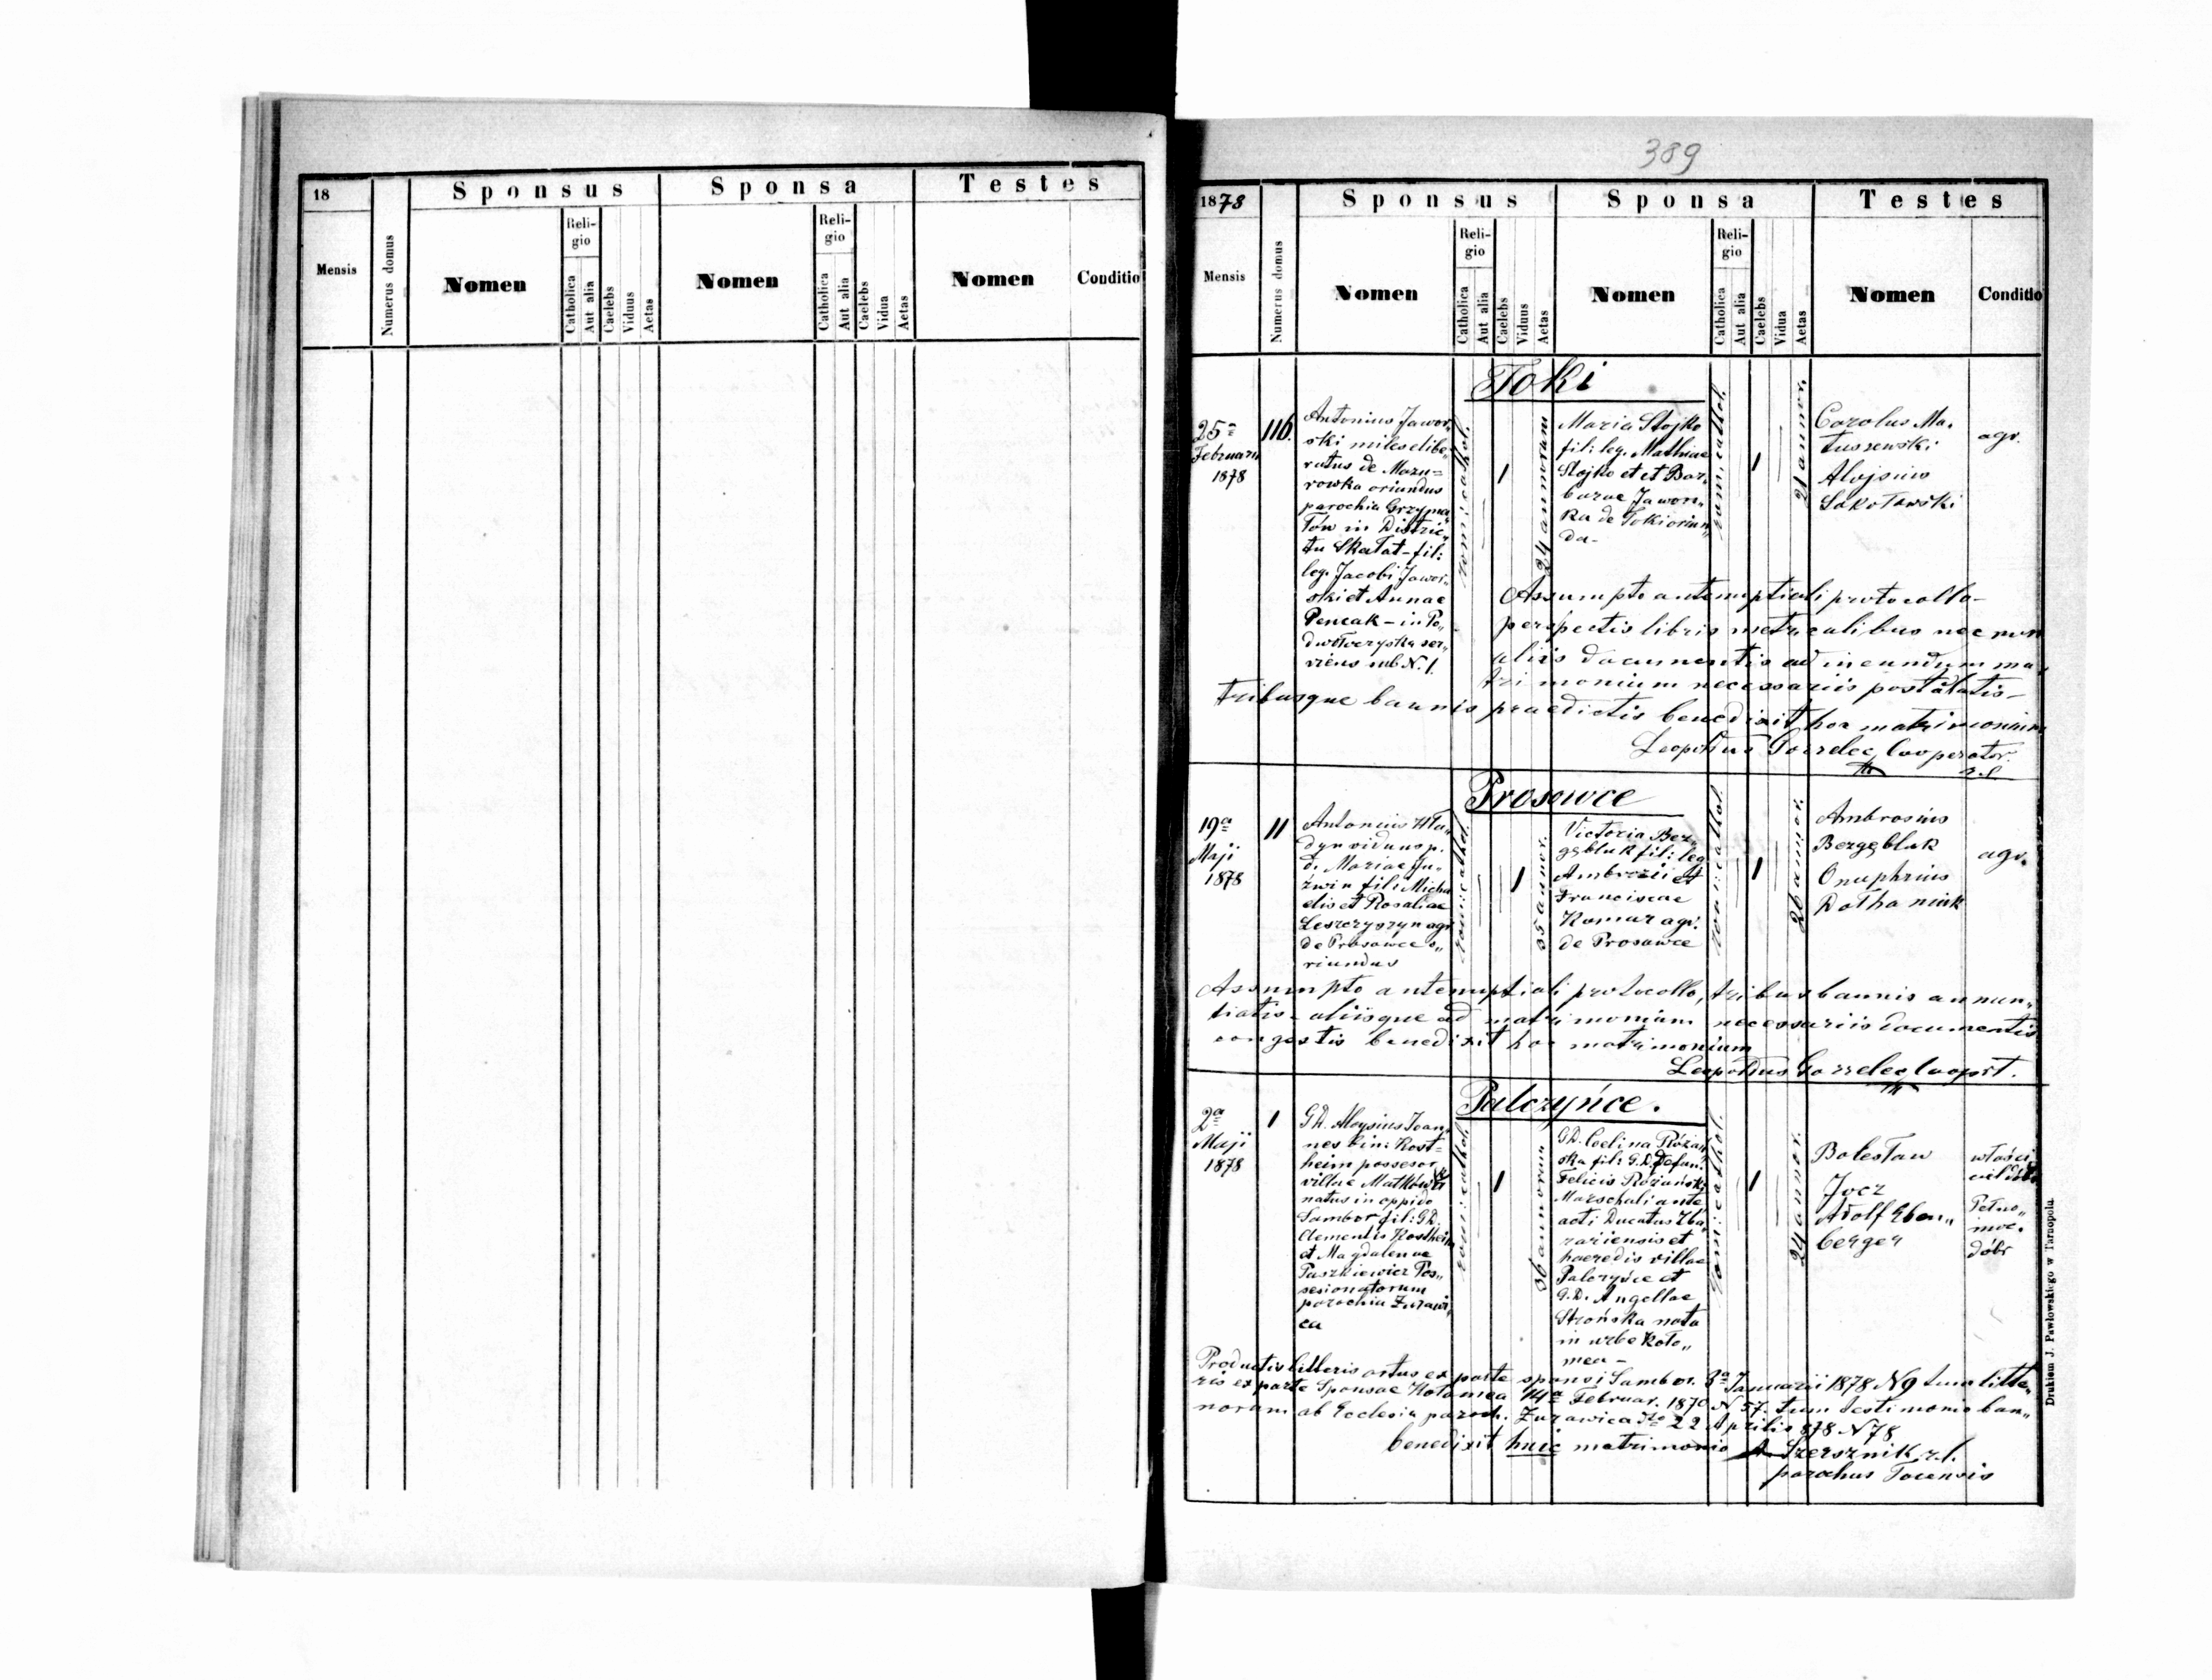 18
Sponsus
Sponsa
Testes
Mensis
Numerus domus
Nomen
Religio
Catholica
Aut alia
Caelebs
Viduus
Aetas
Nomen
Religio
Catholica
Aut alia
Caelebs
Vidua
Aetas
Nomen
Conditio
389
1878
Sponsus
Sponsa
Testes
Mensis
Numerus domus
Nomen
Religio
Catholica
Aut alia
Caelebs
Viduus
Aetas
Nomen
Religio
Catholica
Aut alia
Caelebs
Vidua
Aetas
Nomen
Conditio
Toki
25a
Februarii
1878
116.
Antonius Jawor„
ski miles libe„
ratus de Mazu=
rowka oriundus
parochia Grzyma„
łów in Distric„
tu Skałat - fil:
leg. Jacobi Jawor„
ski et Annae
Pencak - in Po„
dwołoczyska ser„
viens sub N. 1.
rom: cathol.
1
24 annorum
Maria Stojko
fil: leg. Mathiae
Stojko et et Bar„
barae Jawor„
ka de Toki oriun„
da -
rom: cathol.
1
21 annor.
Carolus Ma„
tuszewski
Alojsius
Sokołowski
agr.
Assumpto antenuptiali protocollo -
perspectis libris metricalibus nec non
aliis documentis ad ineundum ma„
trimonium necessariis postulatis -
tribusque bannis praedictis benedixit hoc matrimonium
Leopoldus Cooperator.
r. l.
Prosowce
19a
Maji
1878
11
Antonius Hła„
dyn viduus p.
d. Mariae Ju„
źwin fil: Micha
elis et Rosaliae
Leszczyszyn agr
de Prosowce o„
riundus
rom: cathol.
1
35 annor.
Victoria Bez„
gębluk fil: leg
Ambrozii et
Franciscae
Komur agr.
de Prosowce
rom: cathol.
1
26 annor.
Ambrosius
Bezgębluk
Onuphrius
Dołhaniuk
agr.
Assumpto antenuptiali protocollo, tribus bannis annun„
tiatis - aliisque ad matrimonium necessariis documentis
congestis benedixit hoc matrimonium
Leopoldus Coopert.
Palczyńce.
2a
Maji
1878
1
GD. Aloysius Joan„
nes bin: Rost=
heim possesor
villae Matków
natus in oppido
Sambor fil: GD.
Clementis Rostheim
et Magdalenae
Paszkiewicz Pos„
sesionatorum
parochia Żurawi„
ca
rom: cathol.
1
36 annorum
GD. Celina Różań„
ska fil: G.D. Defun.
Felicis Różański
Marschali ante
acti Ducatus Zba„
rariensis et
haeredis villae
Palczyńce et
G.D. Angellae
Strońska nata
in urbe Koło„
mea -
rom: cathol.
1
24 annor.
Bolesław
Jocz
Adolf Eben„
berger
właści„
ciel dóbr
Pełno„
moc.
dóbr
Productis litteris ortus ex parte sponsi Sambor. 3a Januarii 1878 N 9 tum litte„
ris ex parte Sponsae Kołomea 14a Februar. 1870 N 57. tum testimonio ban„
norum ab Ecclesia paroch. Żurawica dto 22 Aprilis 878 N 78
benedixit huic matrimonio A Szersznik r. l.
parochus Tocensis
Drukiem J. Pawłowskiego w Tarnopolu